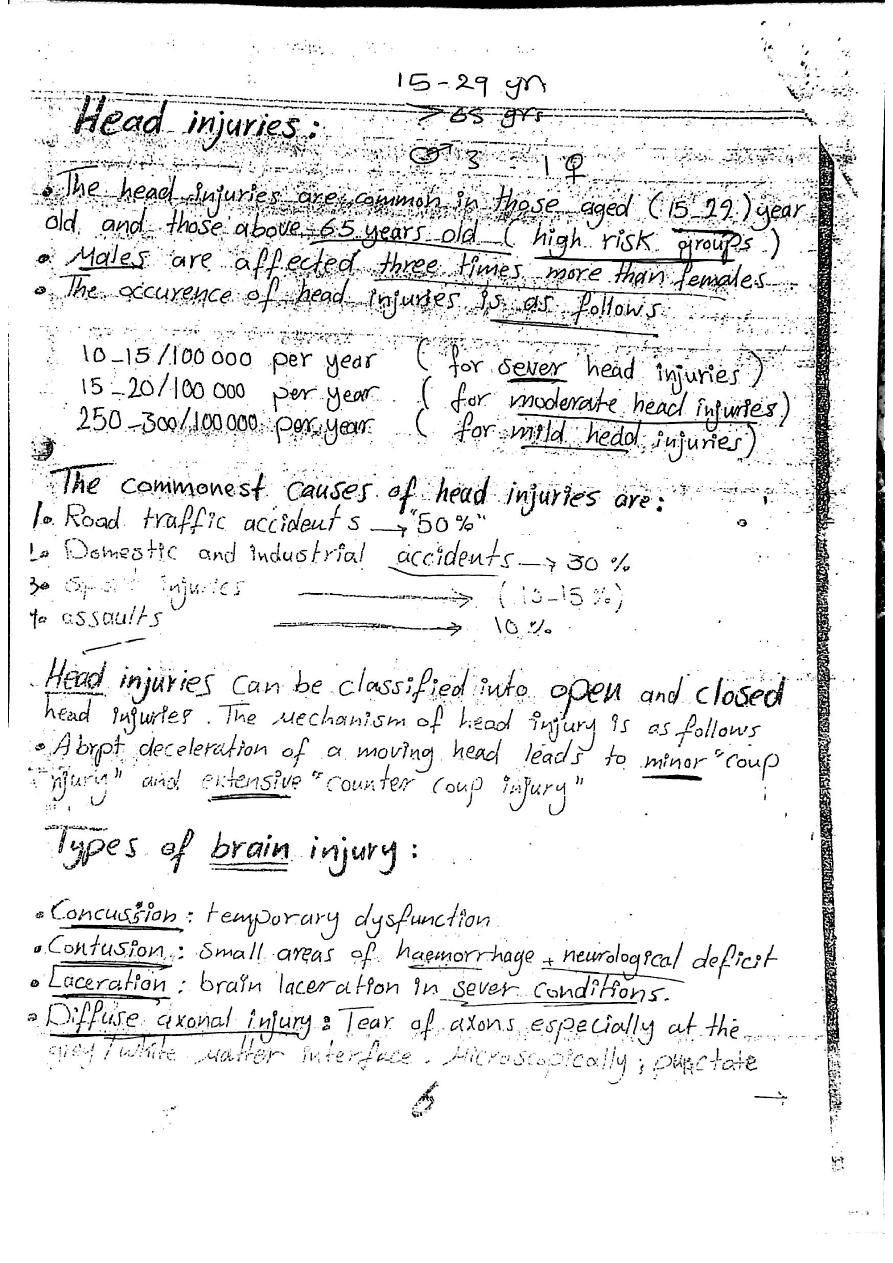 15-29 yrs
> 65 yrs
Head injuries:
♂ 3 : 1 ♀
• The head injuries are common in those aged (15-29) year
old and those above 65 years old (high risk groups)
• Males are affected three times more than females
• The occurence of head injuries is as follows
10-15/100 000 per year (for sever head injuries)
15-20/100 000 per year (for moderate head injuries)
250-300/100 000 per year (for mild head injuries)
The commonest causes of head injuries are:
1. Road traffic accidents → "50%"
Domestic and industrial accidents → 30 %
3. Sport injuries → (10-15 %)
4. assaults → 10 %
Head injuries can be classified into open and closed
head injuries. The mechanism of head injury is as follows
• Abrpt deceleration of a moving head leads to minor "coup
injury" and extensive "counter coup injury"
Types of brain injury:
• Concussion: temporary dysfunction
• Contusion: small areas of haemorrhage + neurological deficit
• Laceration: brain laceration in sever conditions.
• Diffuse axonal injury: Tear of axons especially at the
grey/white matter interface. Microscopically; punctate
6 →